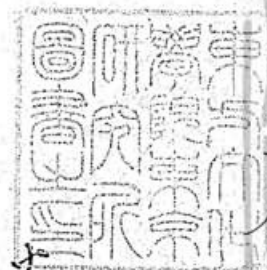 東方文化
學院東京
研究所
圖書之印